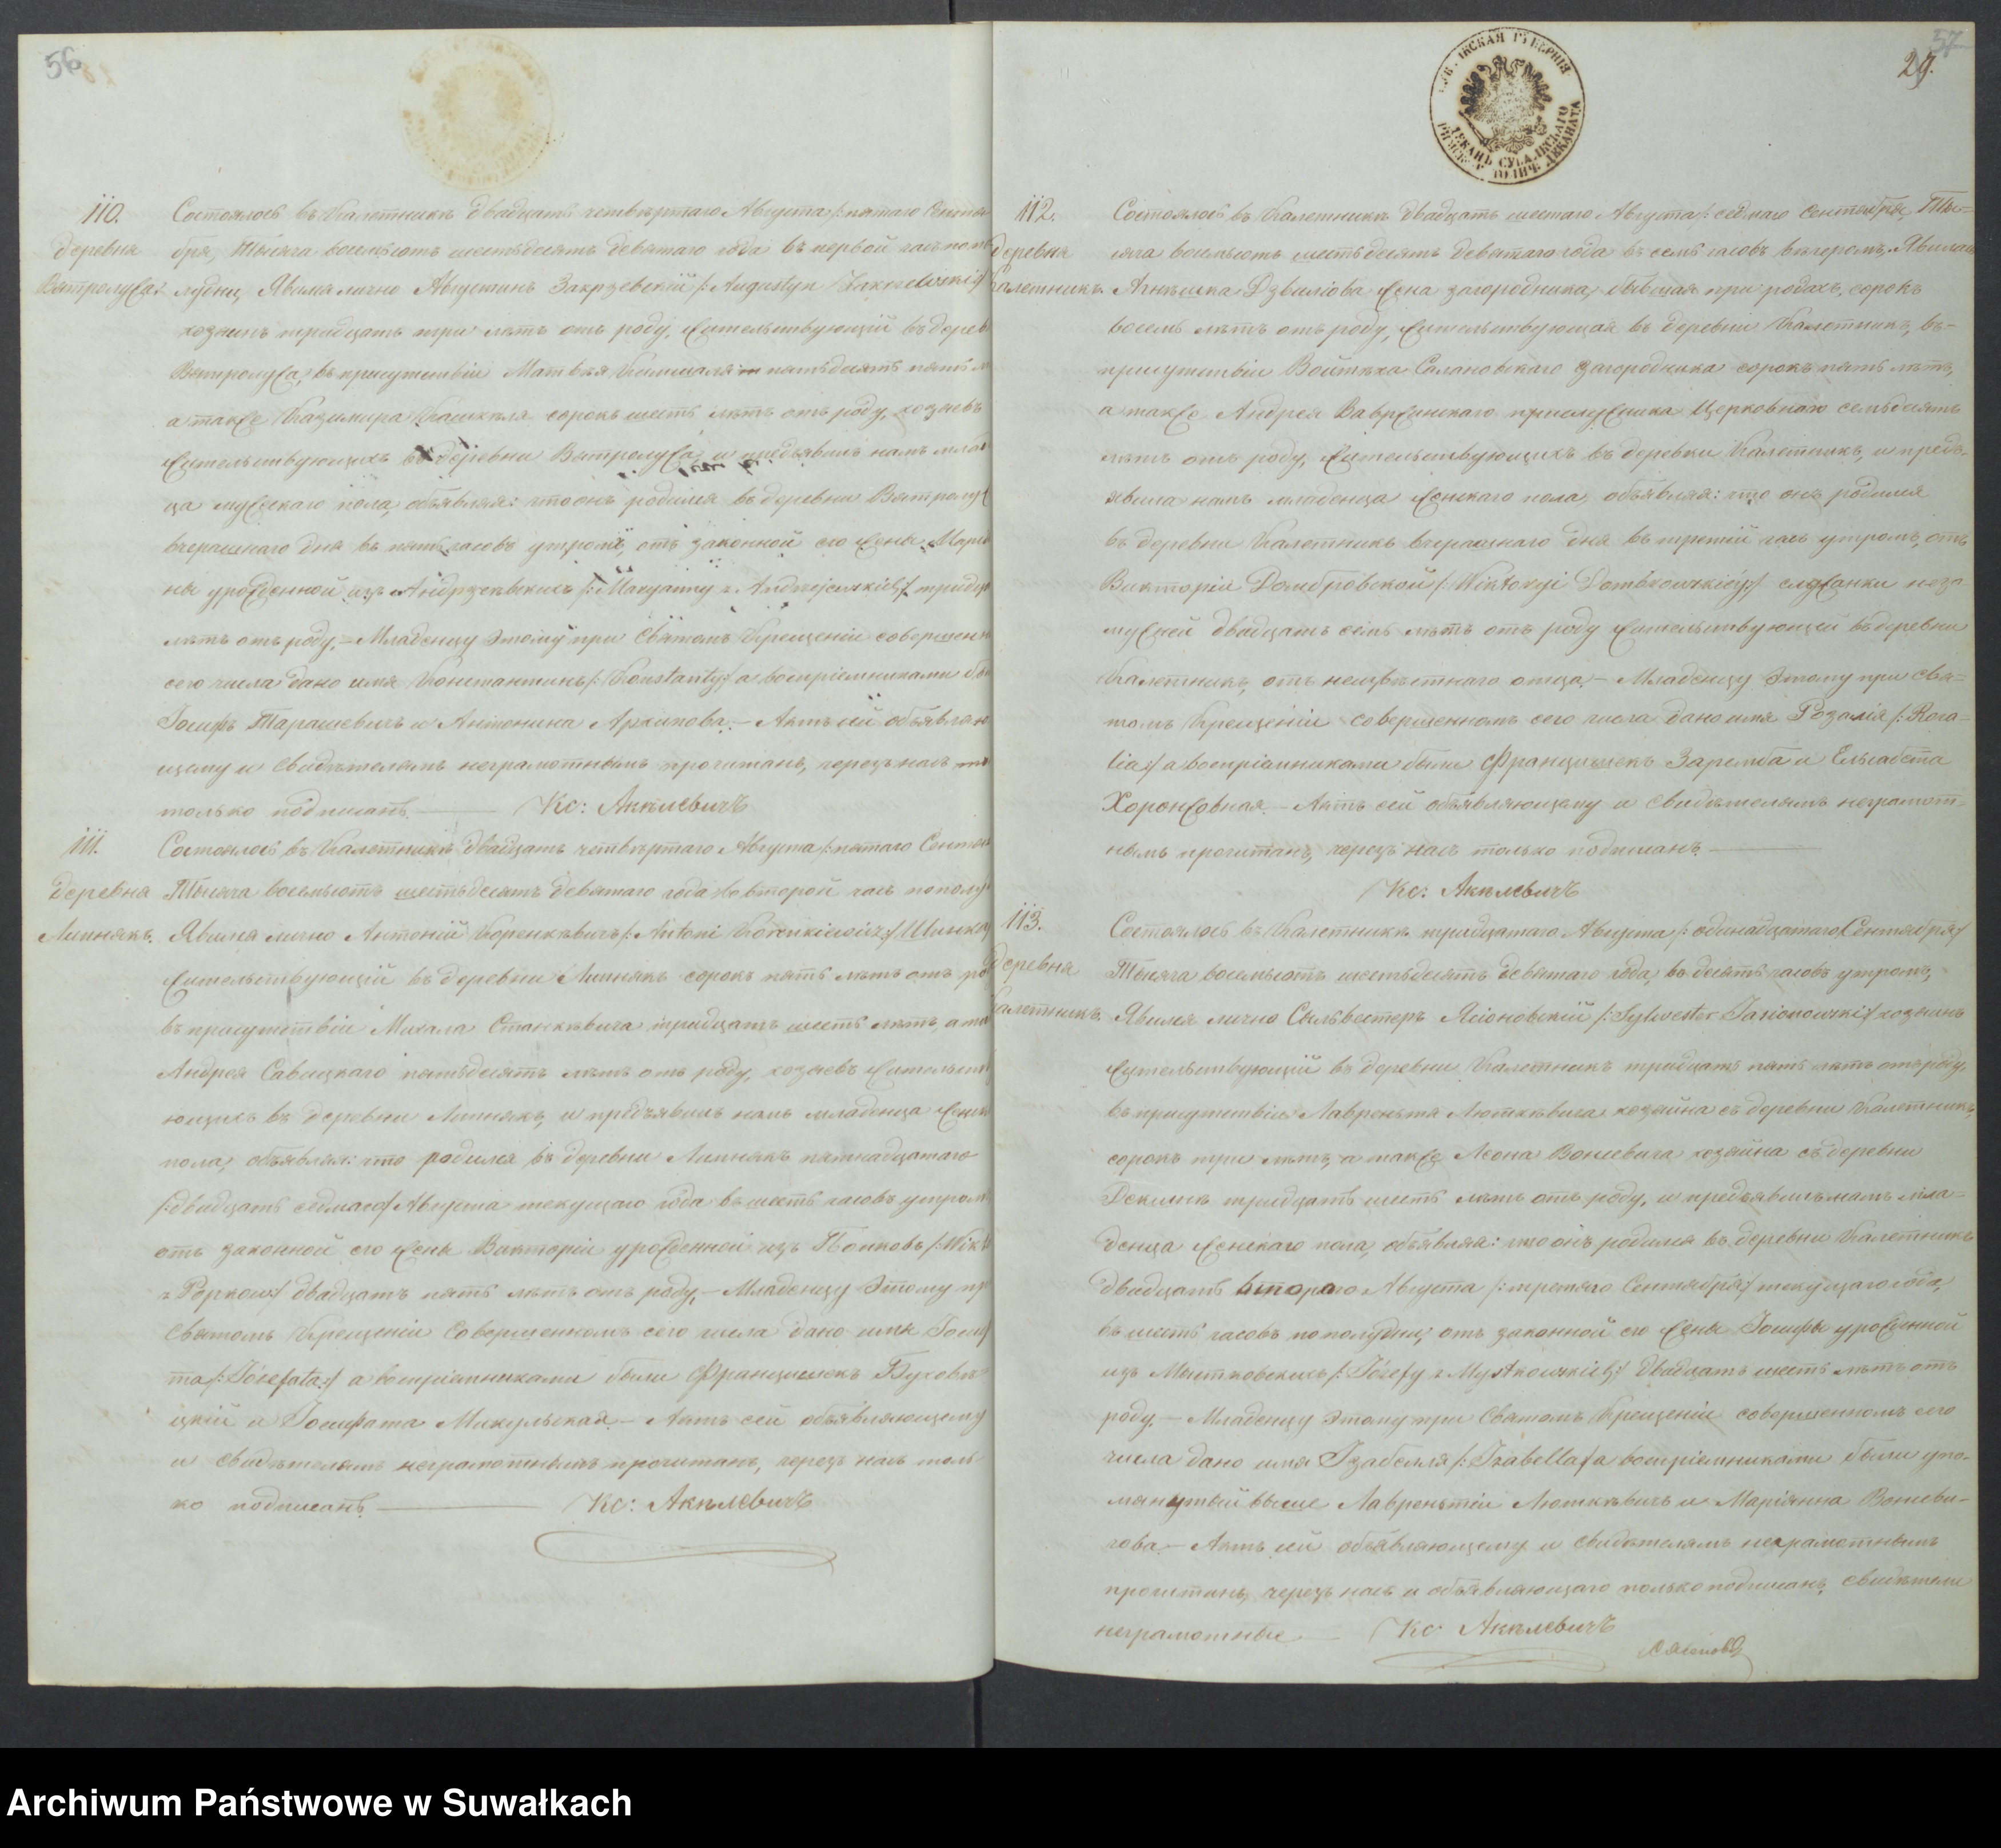 56
110.
деревня
Ватролужа
Состоялось въ Калетникъ двадцать четвертаго Августа /: пятаго Сентя-
бря, Тысяча восемьсотъ шестьдесятъ девятаго года въ первой часъ попо-
лудни, Явился лично Августинъ Закржевскій /: Augustyn Zakrzewski :/
хозяинъ тридцать три лѣтъ отъ роду, жительствующій въ дерев
Ватролужа, въ присутствіи Матвѣя пятьдесятъ пять
а также Казимира сорокъ шесть лѣтъ отъ роду, хозяевъ
жительствующихъ въ деревни Ватролужа, и предъявилъ намъ млад
ца мужескаго пола, объявляя: что онъ родился въ деревни Ватролуж
вчерашнаго дня въ пять часовъ утромъ, отъ законной его жены Марія
ны урожденной изъ Андржеевскихъ /: Maryanny z Andrzejewskich :/ тридц
лѣтъ отъ роду, – Младенцу этому при Святомъ Крещеніи совершенн
сего числа дано имя Константинъ /: Konstanty :/ а воспріемниками бы
Іосифъ Тарашевичъ и Антонина Архипова. – Актъ сей объявляю
щему и свидѣтелямъ неграмотнымъ прочитанъ, черезъ насъ
только подписанъ. Кс: Акѣлевичъ
111.
деревня
Липнякъ.
Состоялось въ Калетникъ двадцать четвертаго Августа /: пятаго Сентя
Тысяча восемьсотъ шестьдесятъ девятаго года во второй часъ пополуд
Явился лично Антоній Коренкѣвичъ /: Antoni Korenkiewicz :/
жительствующій въ деревни Липнякъ сорокъ пять лѣтъ отъ ро
въ присутствіи Михала Станкѣвича тридцать шесть лѣтъ, а та
Андрея Савицкаго пятьдесятъ лѣтъ отъ роду, хозяевъ жительств
ющихъ въ деревни Липнякъ, и предъявилъ намъ младенца женск
пола, объявляя: что родился въ деревни Липнякъ пятнадцатаго
/: двадцать седмаго :/ Августа текущаго года въ шесть часовъ утром
отъ законной его жены Викторіи урожденной изъ Попковъ /: Wikt
z Popkow :/ двадцать пять лѣтъ отъ роду, – Младенцу этому пр
Святомъ Крещеніи Совершенномъ сего числа дано имя Іосиф
та /: Józefata :/ а воспріемниками были Францишекъ
цкій и Іосифата Микульская. – Актъ сей объявляющему
и свидѣтелямъ неграмотнымъ прочитанъ, черезъ насъ толь
ко подписанъ. Кс: Акѣлевичъ
57
29.
112.
деревня
Калетникъ.
Состоялось въ Калетникъ двадцать шестаго Августа /: седмаго Сентября Ты-
сяча восемьсотъ шестьдесятъ девятаго года въ семь часовъ вечеромъ, Явилась
Агнѣшка жена загородника, бывшая при родахъ, сорокъ
восемь лѣтъ отъ роду, жительствующая въ деревни Калетникъ, въ-
присутствіи Войтѣха Солановскаго загородника сорокъ пять лѣтъ,
а также Андрея Вавржинскаго прислужника Церковнаго семьдесятъ
лѣтъ отъ роду, жительствующихъ въ деревни Калетникъ, и предъ-
явила намъ младенца женскаго пола, объявляя: что онъ родился
въ деревни Калетникъ вчерашнаго дня въ третій часъ утромъ, отъ
Викторіи Домбровской /: Wiktoryi Dombrowskiéy :/ служанки неза
мужней двадцать семь лѣтъ отъ роду жительствующей въ деревни
Калетникъ, отъ неизвѣстнаго отца. – Младенцу этому при Свя-
томъ Крещеніи совершенномъ сего числа дано имя Розалія /: Roza-
lia :/ а воспріемниками были Францишекъ Заремба и Ельжбета
Хоронжовная. – Актъ сей объявляющему и свидѣтелямъ неграмот-
нымъ прочитанъ, черезъ насъ только подписанъ.
Кс: Акѣлевичъ
113.
деревня
Калетникъ.
Состоялось въ Калетникъ тридцатаго Августа /: одинадцатаго Сентября :/
Тысяча восемьсотъ шестьдесятъ девятаго года, въ десять часовъ утромъ,
Явился лично Сильвестеръ Ясіоновскій /: Sylwester Jasionowski :/ хозяинъ
жительствующій въ деревни Калетникъ тридцать пять лѣтъ отъ роду,
въ присутствіи Лаврентія Люткѣвича хозяина съ деревни Калетникъ,
сорокъ три лѣтъ, а также Леона Вошевича хозяина съ деревни
тридцать шесть лѣтъ отъ роду, и предъявилъ намъ мла-
денца женскаго пола, объявляя: что онъ родился въ деревни Калетникъ
двадцать второго Августа /: третяго Сентября :/ текущаго года,
въ шесть часовъ пополудни, отъ законной его жены Іосифы урожденной
изъ Мыстковскихъ /: Józefy z Mystkowskich :/ двадцать шесть лѣтъ отъ
роду. – Младенцу этому при Святомъ Крещеніи совершенномъ сего
числа дано имя Ізабелля /: Izabella :/ а воспріемниками были упо-
мянутый выше Лаврентій Люткѣвичъ и Маріянна Вошеви-
чова. – Актъ сей объявляющему и свидѣтелямъ неграмотнымъ
прочитанъ, черезъ насъ и объявляющаго только подписанъ, свидѣтели
неграмотные Кс: Акѣлевичъ
Archiwum Państwowe w Suwałkach